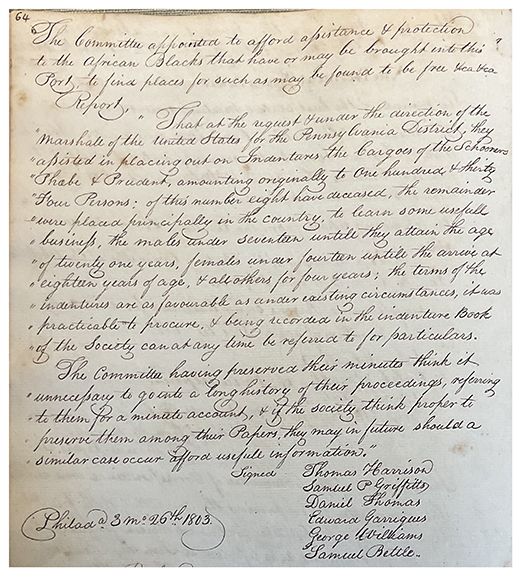 64
"The Committee appointed to afford assistance & protection
to the African Blacks that have or may be brought into this
Port, to find places for such as may be found to be free &ca &ca
Report,
" That at the request & under the direction of the
" Marshale of the United States for the Pennsylvania District, they
" assisted in placing out on Indentures the Cargoes of the Schooners
" Phœbe & Prudent, amounting originally to One hundred, & thirty
" Four Persons; of this number eight have deceased, the remainder
" were placed principally in the country, to learn some usefull
" business, the males under seventeen untill they attain the age
" of twenty one years, females under fourteen untill the arrive at
" eighteen years of age, & all others for four years; the terms of the
" indentures are as favourable as under existing circumstances, it was
" practicable to procure, & being recorded in the indenture Book
" of the Society can at any time be referred to for particulars.
The Committee having preserved their minutes think it
" unnecessary to go into a long history of their proceedings, refering
" to them for a minute account, & if the society think proper to
" preserve them among their Papers, they may in future should a
" similar case occur afford usefull information."
Signed Thomas Harrison
Samuel P Griffitts
Daniel Thomas
Edward Garrigues
George Williams
Samuel Bettle.
Philada 3 mo. 26th. 1803.